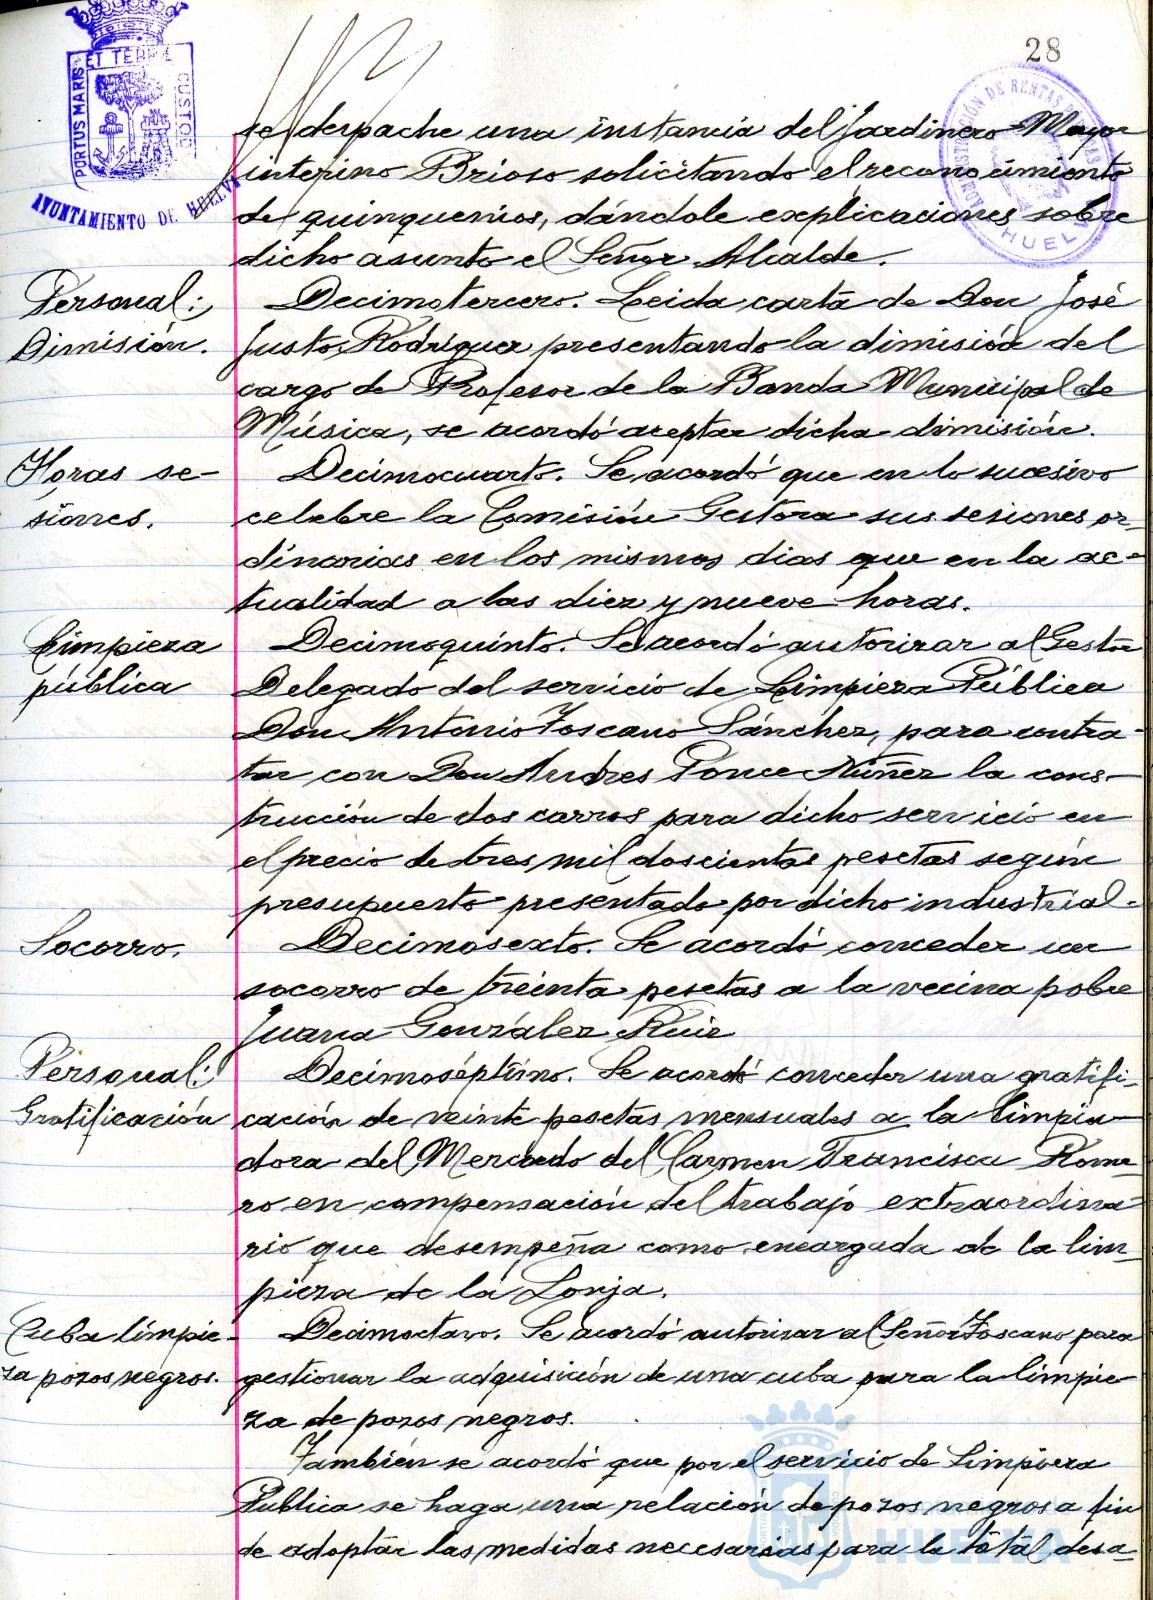 28
PORTUS MARIS
ET TERRÆ
CUSTOD
AYUNTAMIENTO DE HUELVA
ADMINISTRACIÓN DE RENTAS PÚBLICAS
HUELVA
se despache una instancia del Jardinero Mayor
interino Brioso solicitando el reconocimiento
de quinquenios, dándole explicaciones sobre
dicho asunto el Señor Alcalde.
Personal: Decimotercero. Leida carta de Don José
Dimisión. Justo Rodríguez presentando la dimisión del
cargo de Profesor de la Banda Municipal de
Música, se acordó aceptar dicha dimisión.
Horas se- Decimocuarto. Se acordó que en lo sucesivo
siones. celebre la Comisión Gestora sus sesiones or-
dinarias en los mismos dias que en la ac-
tualidad a las diez y nueve horas.
Limpieza Decimoquinto. Se acordó autorizar al Gestor
pública Delegado del servicio de Limpieza Pública
Don Antonio Toscano Sánchez, para contra-
tar con Don Andres Ponce Núñez la cons-
trucción de dos carros para dicho servicio en
el precio de tres mil doscientas pesetas según
presupuesto presentado por dicho industrial.
Socorro. Decimosexto. Se acordó conceder un
socorro de treinta pesetas a la vecina pobre
Juana González Ruiz
Personal: Decimoséptimo. Se acordó conceder una gratifi-
Gratificación cación de veinte pesetas mensuales a la limpia-
dora del Mercado del Carmen Francisca Rome-
ro en compensación del trabajo extraordina-
rio que desempeña como encargada de la lim-
pieza de la Lonja.
Cuba limpie- Decimoctavo. Se acordó autorizar al Señor Toscano para
za pozos negros. gestionar la adquisición de una cuba para la limpie-
za de pozos negros.
También se acordó que por el servicio de Limpieza
Publica se haga una relación de pozos negros a fin
de adoptar las medidas necesarias para la total desa-
HUELVA